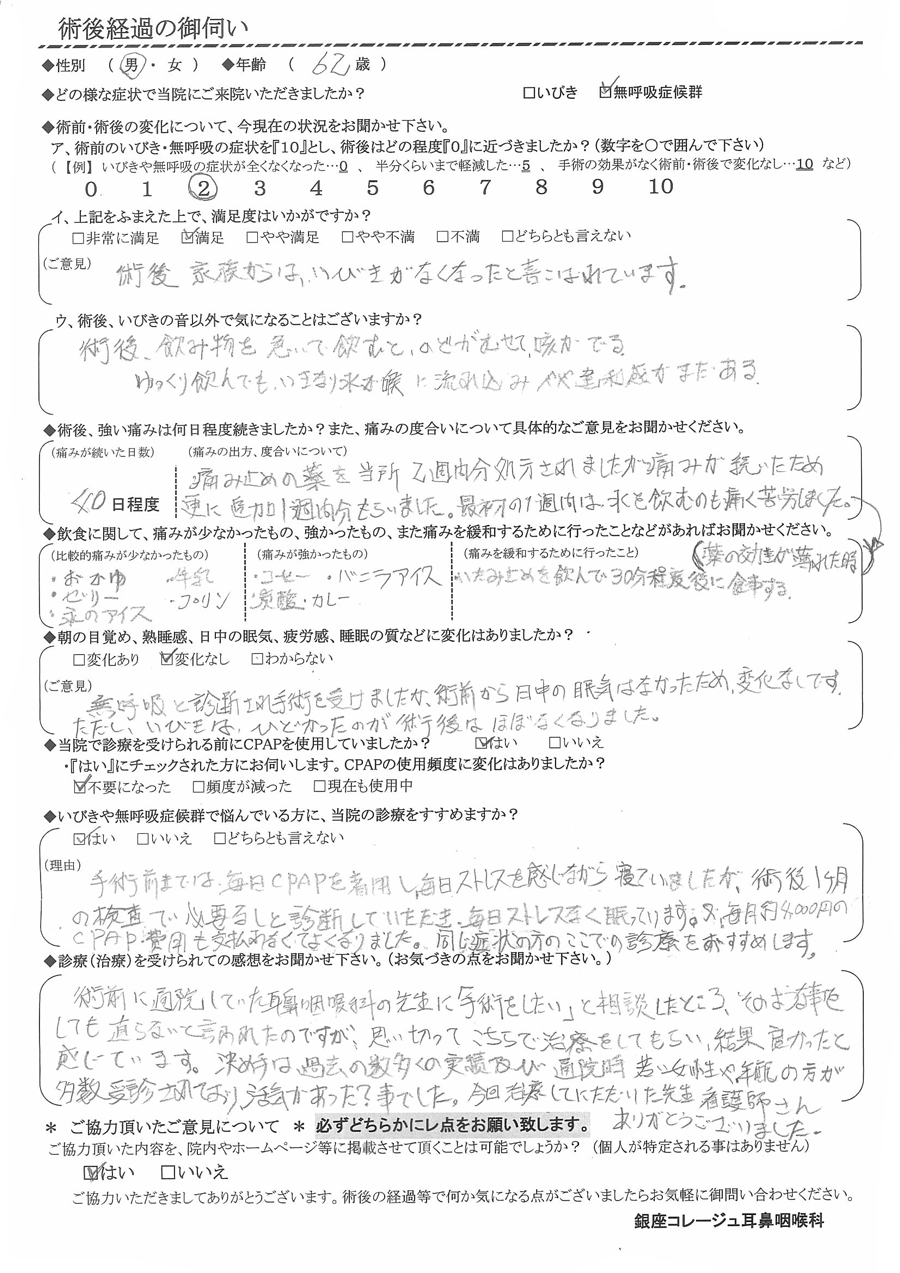 術後経過の御伺い
◆性別 （ 男 ・ 女 ） ◆年齢 （ 62 歳 ）
◆どの様な症状で当院にご来院いただきましたか？ □いびき ☑無呼吸症候群
◆術前・術後の変化について、今現在の状況をお聞かせ下さい。
ア、術前のいびき・無呼吸の症状を『10』とし、術後はどの程度『0』に近づきましたか？（数字を〇で囲んで下さい）
（【例】いびきや無呼吸の症状が全くなくなった…0 、 半分くらいまで軽減した…5 、 手術の効果がなく術前・術後で変化なし…10 など）
0 1 2 3 4 5 6 7 8 9 10
イ、上記をふまえた上で、満足度はいかがですか？
□非常に満足 ☑満足 □やや満足 □やや不満 □不満 □どちらとも言えない
（ご意見） 術後 家族からは、いびきがなくなったと喜こばれています。
ウ、術後、いびきの音以外で気になることはございますか？
術後、飲み物を急いで飲むと、のどがむせて、咳がでる
ゆっくり飲んでも、いきなり水が喉に流れ込みやや違和感がまだある.
◆術後、強い痛みは何日程度続きましたか？また、痛みの度合いについて具体的なご意見をお聞かせください。
（痛みが続いた日数） （痛みの出方、度合いについて）
痛み止めの薬を当所 2週間分処方されましたが痛みが続いたため
40 日程度 更に追加1週間分もらいました。最初の1週間は、水を飲むのも痛く苦労しました。
◆飲食に関して、痛みが少なかったもの、強かったもの、また痛みを緩和するために行ったことなどがあればお聞かせください。
（比較的痛みが少なかったもの） （痛みが強かったもの） （痛みを緩和するために行ったこと） （薬の効きが薄れた時）
・おかゆ ・牛乳 ・コーヒー ・バニラアイス いたみ止めを飲んで30分程度後に食事する.
・ゼリー ・プリン ・炭酸 ・カレー
・氷のアイス
◆朝の目覚め、熟睡感、日中の眠気、疲労感、睡眠の質などに変化はありましたか？
□変化あり ☑変化なし □わからない
（ご意見）
無呼吸と診断され手術を受けましたが、術前から日中の眠気はなかったため、変化なしです.
ただし、いびきは、ひどかったのが術後はほぼなくなりました。
◆当院で診療を受けられる前にCPAPを使用していましたか？ ☑はい □いいえ
・『はい』にチェックされた方にお伺いします。CPAPの使用頻度に変化はありましたか？
☑不要になった □頻度が減った □現在も使用中
◆いびきや無呼吸症候群で悩んでいる方に、当院の診療をすすめますか？
☑はい □いいえ □どちらとも言えない
（理由）
手術前までは、毎日CPAPを着用し、毎日ストレスを感じながら寝ていましたが、術後1ヶ月
の検査で必要なしと診断していただき、毎日ストレスなく眠っています。又、毎月約4,000円の
CPAP費用も支払わなくてよくなりました。同じ症状の方のここでの診療をおすすめします。
◆診療（治療）を受けられての感想をお聞かせ下さい。（お気づきの点をお聞かせ下さい。）
術前に通院していた耳鼻咽喉科の先生に「手術をしたい」と相談したところ、そのような事を
しても直らないと言われたのですが、思い切ってこちらで治療をしてもらい、結果良かったと
感じています。決め手は過去の数多くの実績及び通院時若い女性や年配の方が
多数受診されており、活気があった？事でした。今回治療していただいた先生 看護師さん
ありがとうございました。
＊ ご協力頂いたご意見について ＊ 必ずどちらかにレ点をお願い致します。
ご協力頂いた内容を、院内やホームページ等に掲載させて頂くことは可能でしょうか？ （個人が特定される事はありません）
☑はい □いいえ
ご協力いただきましてありがとうございます。術後の経過等で何か気になる点がございましたらお気軽に御問い合わせください。
銀座コレージュ耳鼻咽喉科